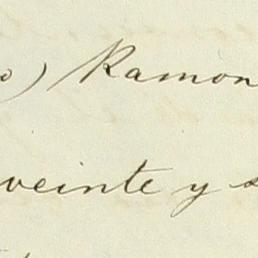 ) Ramon
veinte y